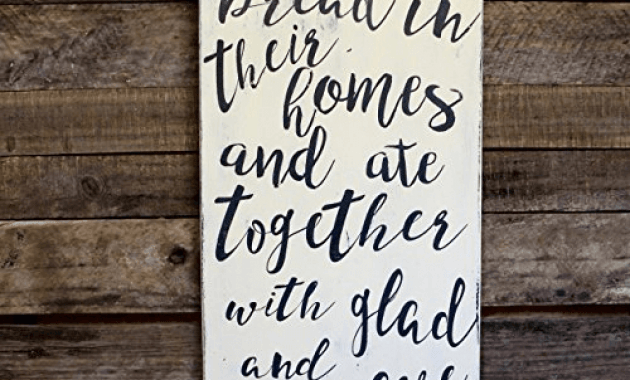 bread in
their
homes
and ate
together
with glad
and